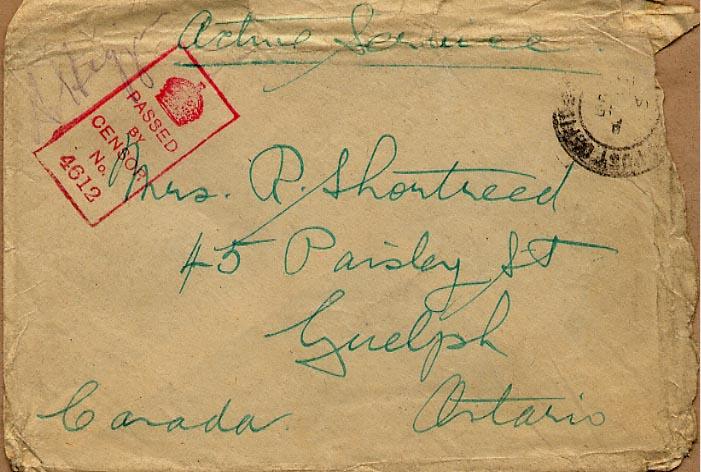 Active Service.
PASSED
BY
CENSOR
No.
4612
Mrs. R. Shortreed
45 Paisley St
Guelph
Canada. Ontario